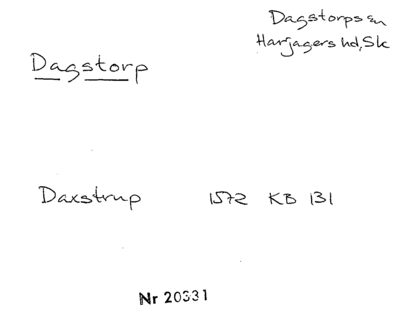 Dagstorps sn
Harjagers hd, Sk
Dagstorp
Daxstrup 1572 KB 131
Nr 20331